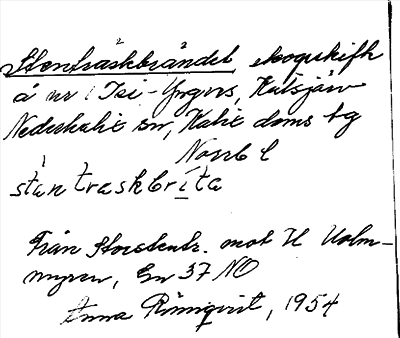 Stenträskbrändet, skogskifte
å nr 1 Isi-Yngers, Kätsjärv
Nederkalix sn, Kalix doms tg
Norrb l
stan traskbrita
Från Storstentr. mot H Holm-
myren, En 37 NO
Anna Rönnqvist, 1954